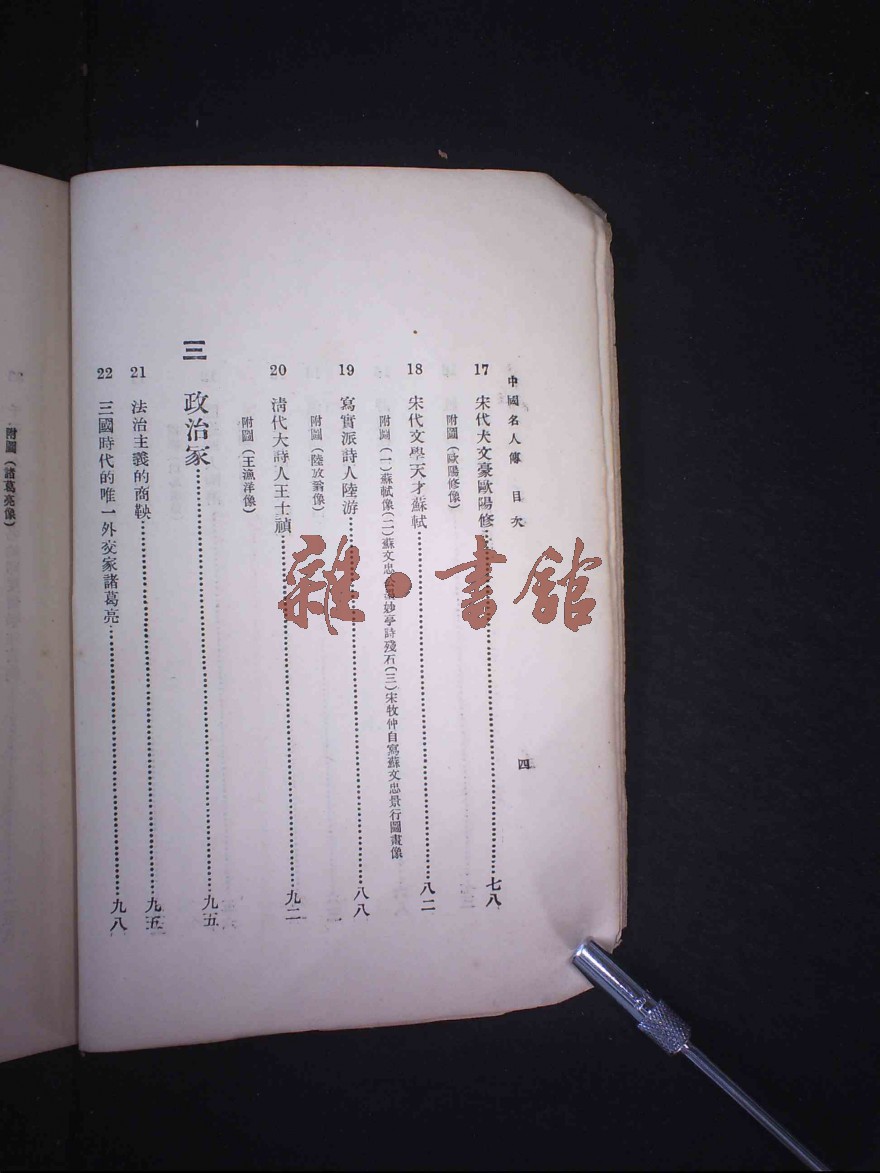 中國名人傳 目次
四
17 宋代大文豪歐陽修……七八
附圖(歐陽修像)
18 宋代文學天才蘇軾……八二
附圖(一)蘇軾像(二)蘇文忠公 妙亭詩殘石(三)宋牧仲自寫蘇文忠景行圖畫像
19 寫實派詩人陸游……八八
附圖(陸放翁像)
20 清代大詩人王士禎……九二
附圖(王漁洋像)
三 政治家……九五
21 法治主義的商鞅……九五
22 三國時代的唯一外交家諸葛亮……九八
附圖(諸葛亮像)
雜·書館